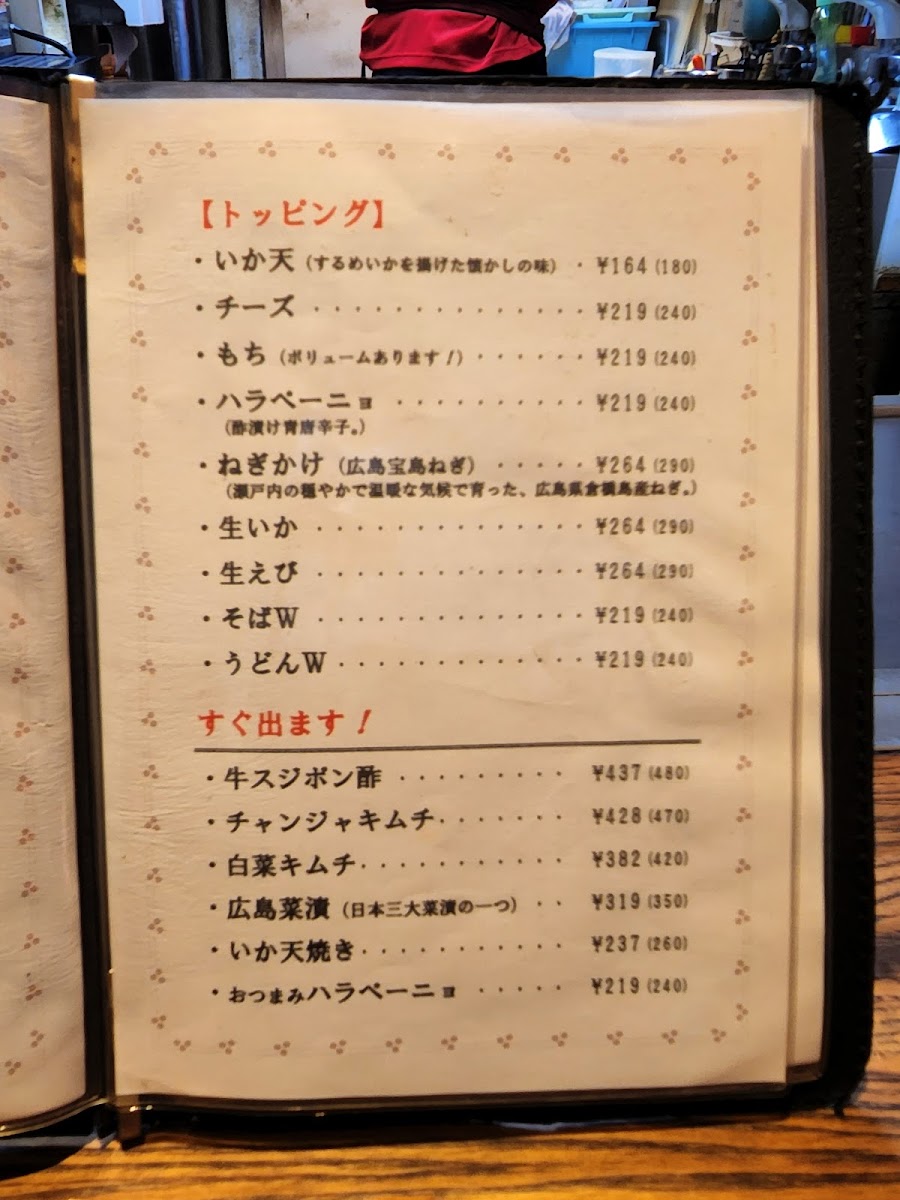 【トッピング】
・いか天（するめいかを揚げた懐かしの味）・¥164(180)
・チーズ ・・・・・・・・・・・・・・¥219(240)
・もち（ボリュームあります！）・・・・・・¥219(240)
・ハラペーニョ ・・・・・・・・・・¥219(240)
（酢漬け青唐辛子。）
・ねぎかけ（広島宝島ねぎ）・・・・・¥264(290)
（瀬戸内の穏やかで温暖な気候で育った、広島県倉橋島産ねぎ。）
・生いか ・・・・・・・・・・・・・・¥264(290)
・生えび ・・・・・・・・・・・・・・¥264(290)
・そばW ・・・・・・・・・・・・・・¥219(240)
・うどんW・・・・・・・・・・・・・¥219(240)
すぐ出ます！
・牛スジポン酢 ・・・・・・・・・¥437(480)
・チャンジャキムチ・・・・・・・¥428(470)
・白菜キムチ・・・・・・・・・・・¥382(420)
・広島菜漬（日本三大菜漬の一つ）・・¥319(350)
・いか天焼き・・・・・・・・・・・¥237(260)
・おつまみハラペーニョ ・・・・・¥219(240)